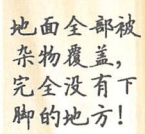 地面全部被
杂物覆盖，
完全没有下
脚的地方！